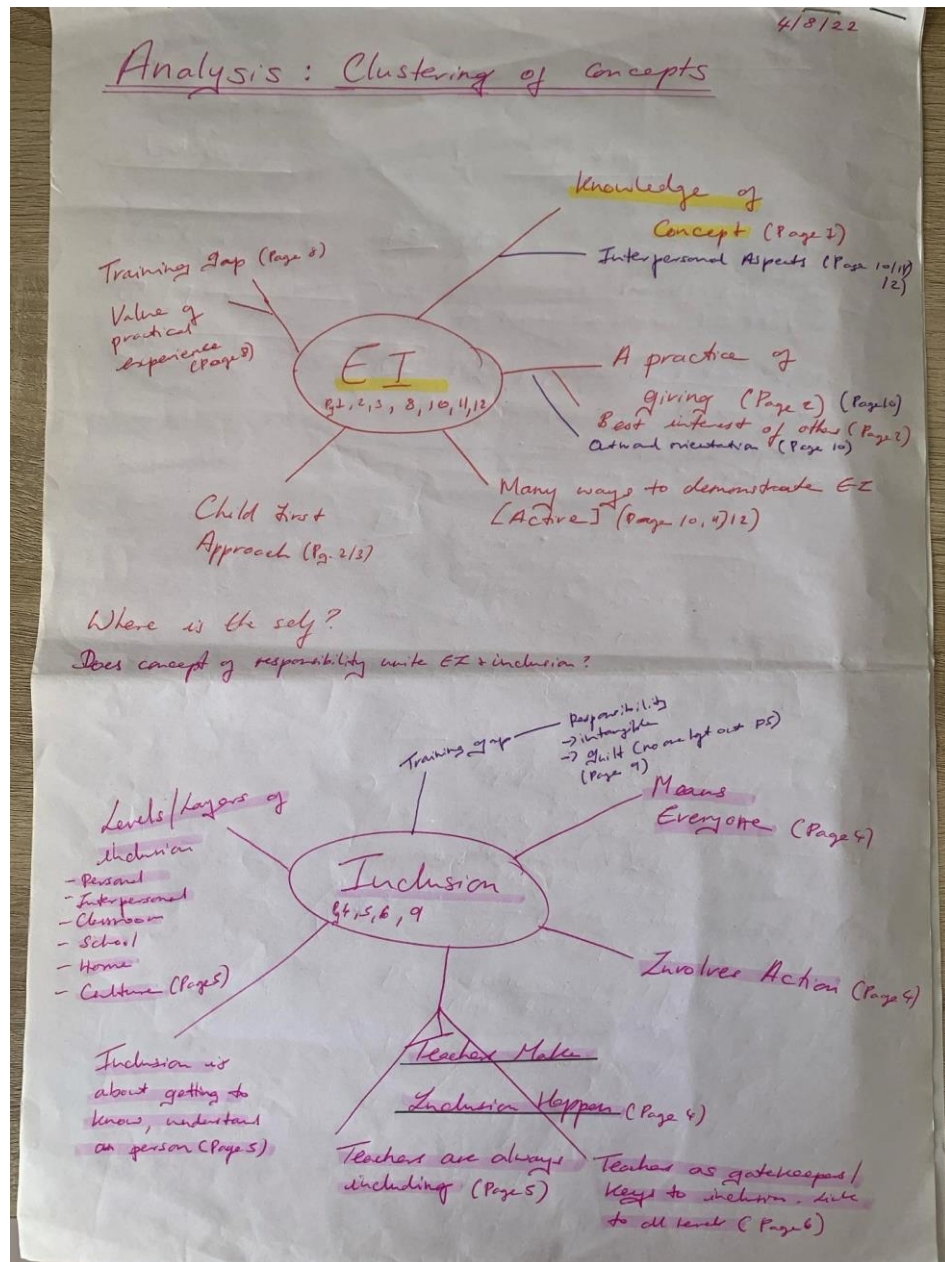 4/8/22
Analysis : Clustering of Concepts
Knowledge of
Concept (Page 1)
Interpersonal Aspects (Page 10/11/
12)
Training gap (Page 8)
Value of
practical
experience
(Page 8)
EI
Pg 1, 2, 3, 8, 10, 11, 12
A practice of
giving (Page 2) (Page 10)
Best interest of other (Page 2)
Outward orientation (Page 10)
Many ways to demonstrate EI
[Active] (Page 10, 11, 12)
Child first
Approach (Pg. 2/3)
Where is the self?
Does concept of responsibility unite EI + inclusion?
Training gap
Responsibility
-> intangible
-> guilt (no one left out PS)
(Page 9)
Means
Everyone (Page 4)
Levels/Layers of
inclusion
- Personal
- Interpersonal
- Classroom
- School
- Home
- Culture (Page 5)
Inclusion
Pg 4, 5, 6, 9
Involves Action (Page 4)
Inclusion is
about getting to
know, understand
an person (Page 5)
Teachers Make
Inclusion Happen (Page 4)
Teachers are always
including (Page 5)
Teacher as gatekeepers/
keys to inclusion. Link
to all level (Page 6)